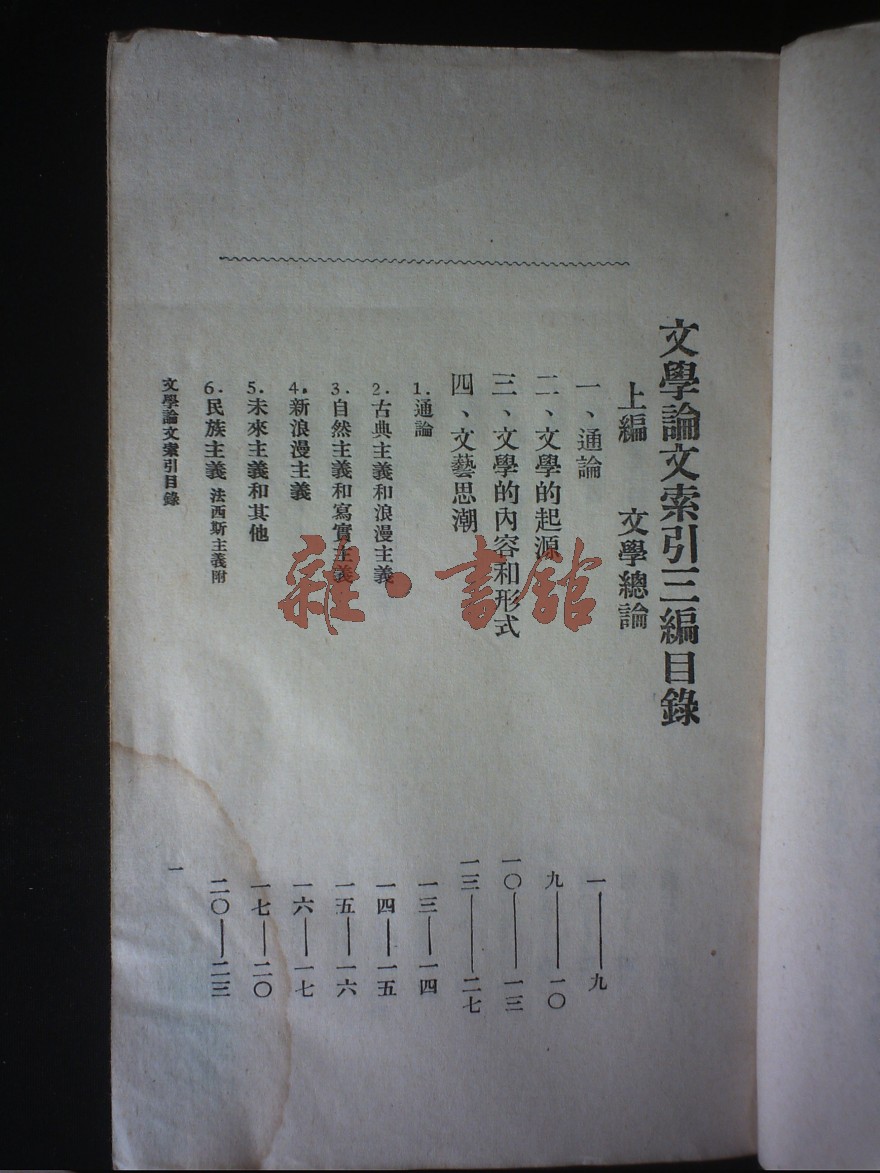 文學論文索引三編目錄
上編　文學總論
一、通論　一——九
二、文學的起源　九——一〇
三、文學的內容和形式　一〇——一三
四、文藝思潮　一三——二七
1.通論　一三——一四
2.古典主義和浪漫主義　一四——一五
3.自然主義和寫實主義　一五——一六
4.新浪漫主義　一六——一七
5.未來主義和其他　一七——二〇
6.民族主義 法西斯主義附　二〇——二三
文學論文索引目錄　一
雜·書館